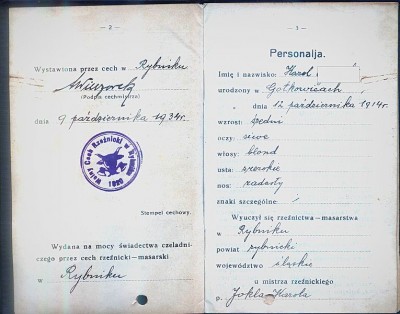 — 2 —
Wystawiona przez cech w Rybniku
AWieczorek
(Podpis cechmistrza)
dnia 9 października 1934r.
Wolny Cech Rzeźnicki w Rybniku
1920
Stempel cechowy.
Wydana na mocy świadectwa czeladni-
czego przez cech rzeźnicki-masarski
w Rybniku
— 3 —
Personalja.
Imię i nazwisko: Karol
urodzony w Gołkowicach
dnia 12 października 1914r.
wzrost: średni
oczy: siwe
włosy: blond
usta: szerokie
nos: zadarty
znaki szczególne:
Wyuczył się rzeźnictwa-masarstwa
w Rybniku
powiat rybnicki
województwo śląskie
u mistrza rzeźnickiego
p. Jokla Karola